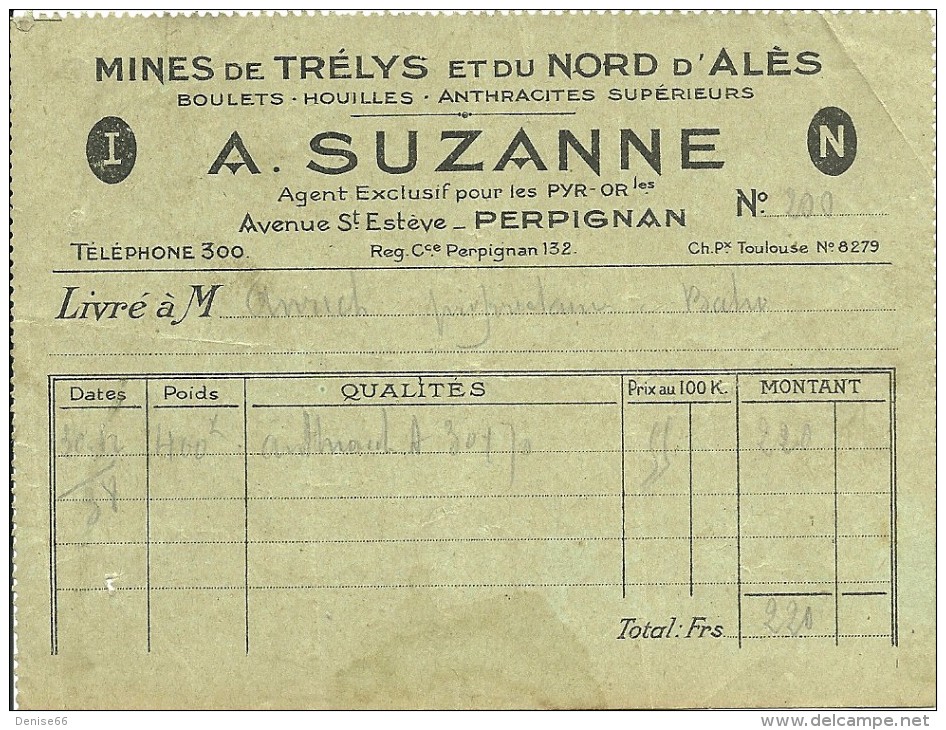 MINES DE TRÉLYS ET DU NORD D'ALÈS
BOULETS · HOUILLES · ANTHRACITES SUPÉRIEURS
I A. SUZANNE N
Agent Exclusif pour les PYR-OR les
Avenue St Estève _ PERPIGNAN
No. 200
TÉLÉPHONE 300. Reg. Cce Perpignan 132. Ch. Px Toulouse No 8279
Livré à M propriétaire Baho
Dates Poids QUALITÉS Prix au 100 K. MONTANT
30 12 400 K A 30 x 70 55 220
38
Total: Frs 220
Denise66 delcampe.net